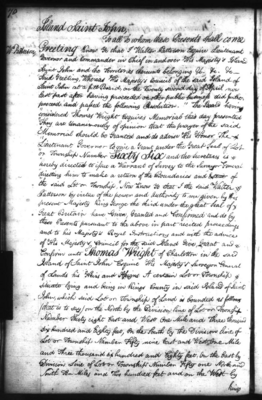 Island Saint John
To all to whom these Presents shall come
Greeting Know Ye that I Walter Patterson Esquire Lieutenant
Governor and Commander in Chief in and over His Majesty's Island
Saint John and the Territories thereunto belonging &c &c
And Whereas His Majesty's Council of the said Island of
Saint John at a on the Twenty second day of April now
last past after having proceeded on other public business did further
proceed and passed the following Resolution The Board having
considered Thomas Wright Esquires Memorial this day presented
They are unanimously of opinion that the prayer of the said
Memorial should be Granted and do advise His Honor the
Lieutenant Governor to give a Grant under the Great Seal of Lot
or Township Number Sixty Six and the Secretary is
hereby directed to issue a Warrant of Survey to the Surveyor General
directing him to make a return of the boundaries and
of the said Lot or Township Now Know Ye that I the said Walter
Patterson by virtue of the power and authority to me given by His
present Majesty King George the third under the great Seal of
Great Britain have Given, Granted and Confirmed and do by
these Presents pursuant to the above in part recited proceedings
and to his Majesty's Royal Instructions and with the advice
of His Majesty's Council for the said Island Give Grant and
Confirm unto Thomas Wright of Charlotte in the said
Island of Saint John Esquire His Majesty's Surveyor General
of Lands his Heirs and Assigns A certain Lot or Township
situate lying and being in Kings County in said Island of Saint
John which said Lot or Township of Land is bounded as follows
(that is to say) on the North by the Division line of Lot or Township
Number thirty eight East and West One Mile and three thousand
six hundred and Eighty feet, On the South by the Division line of
Lot or Township Number Fifty nine East and West One Mile
and Three thousand six hundred and Eighty feet, On the East by
Division line of Lot or Township Number Fifty one North and
South Ten Miles and Two hundred feet and on the West by